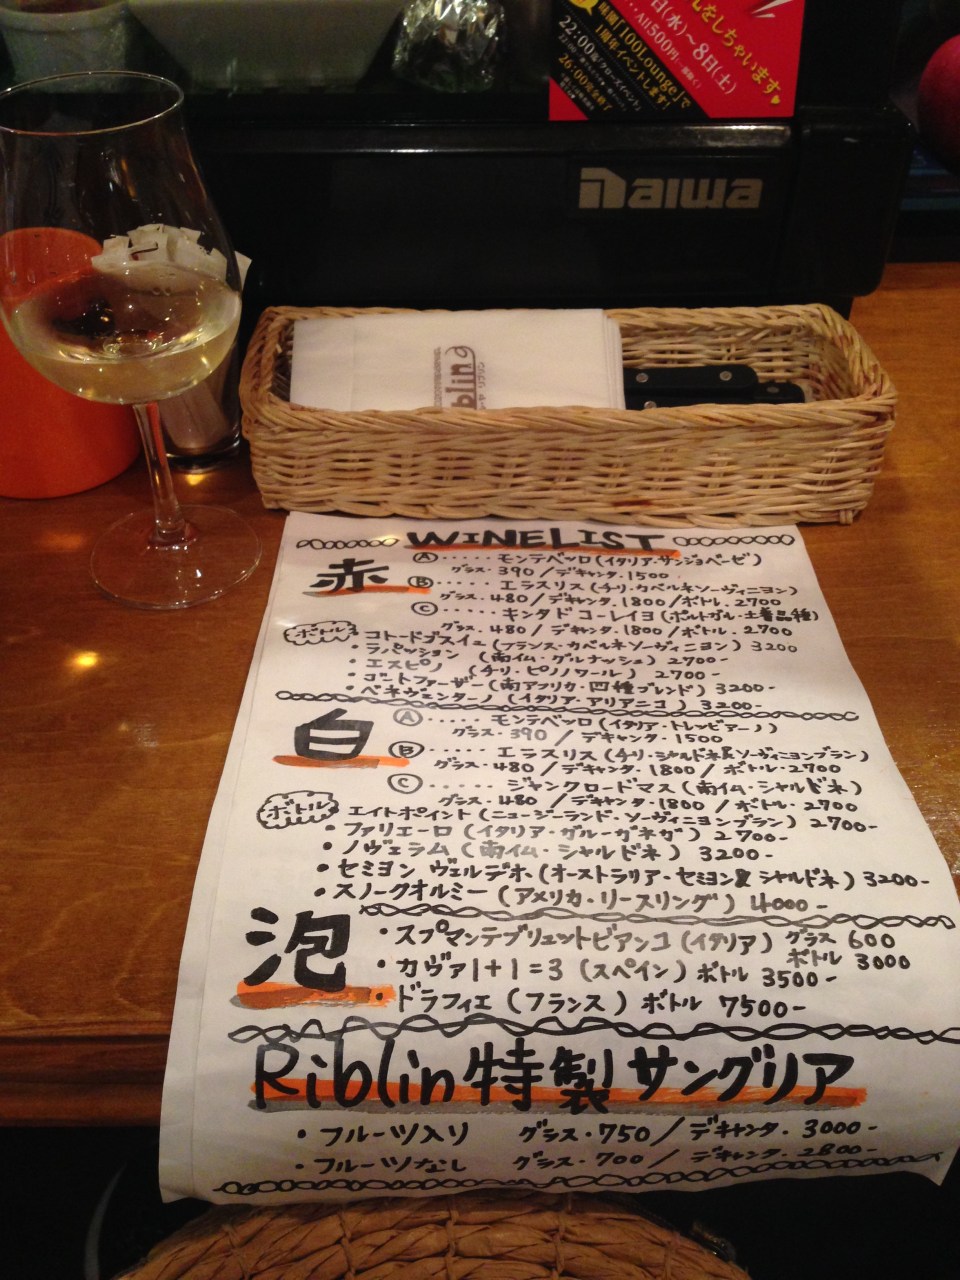 をしちゃいます♥
日(水)〜8日(土)
All500円〜
「100Lounge」で
1周年イベントします!
22:00
26:00
Daiwa
blin
リブリン
WINE LIST
赤
Ⓐ・・・・・モンテベッロ(イタリア・サンジョベーゼ)
グラス・390/デキャンタ・1500
Ⓑ・・・・・エラスリス(チリ・カベルネソーヴィニヨン)
グラス・480/デキャンタ・1800/ボトル・2700
Ⓒ・・・・・キンタドコーレイヨ(ポルトガル・土着品種)
グラス・480/デキャンタ・1800/ボトル・2700
ボトル
・コトードゴスイュ(フランス・カベルネソーヴィニヨン)3200
・ラパッション(南仏・グルナッシュ)2700-
・エスピノ(チリ・ピノノワール)2700-
・ゴートファーザー(南アフリカ・四種ブレンド)3200-
・ベネヴェンターノ(イタリア・アリアニコ)3200-
白
Ⓐ・・・・・モンテベッロ(イタリア・トレッビアーノ)
グラス・390/デキャンタ・1500
Ⓑ・・・・・エラスリス(チリ・シャルドネ&ソーヴィニヨンブラン)
グラス・480/デキャンタ・1800/ボトル・2700
Ⓒ・・・・・ジャンクロードマス(南仏・シャルドネ)
グラス・480/デキャンタ・1800/ボトル・2700
ボトル
・エイトポイント(ニュージーランド・ソーヴィニヨンブラン)2700-
・ファリエーロ(イタリア・ガルーガネガ)2700-
・ノヴェラム(南仏・シャルドネ)3200-
・セミヨン ヴェルデホ(オーストラリア・セミヨン&シャルドネ)3200-
・スノークオルミー(アメリカ・リースリング)4000-
泡
・スプマンテブリュットビアンコ(イタリア)グラス 600
ボトル 3000
・カヴァ1+1=3(スペイン)ボトル 3500-
・ドラフィエ(フランス)ボトル 7500-
Riblin特製サングリア
・フルーツ入り グラス・750/デキャンタ・3000-
・フルーツなし グラス・700/デキャンタ・2800-